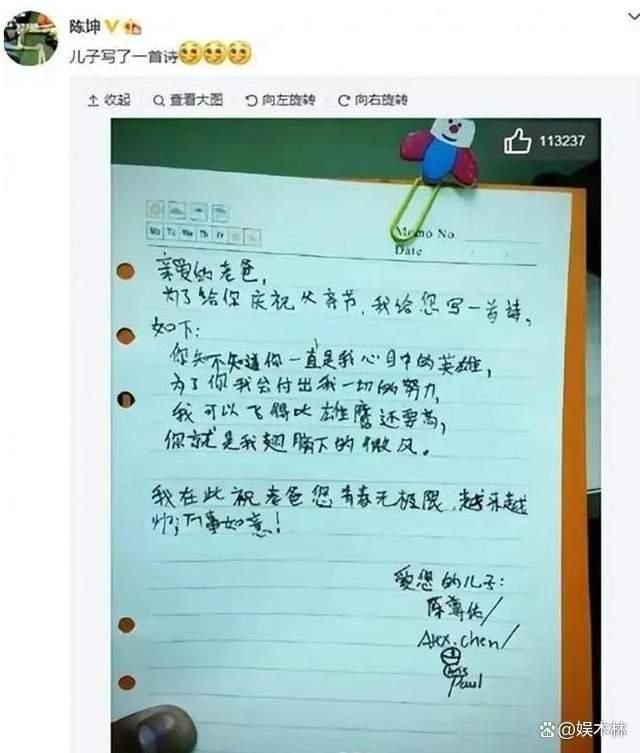 陈坤
儿子写了一首诗
收起 查看大图 向左旋转 向右旋转
113237
Mo Tu We Th Fr
Memo No.
Date
亲爱的老爸,
为了给你庆祝父亲节,我给您写一首诗,
如下:
你知不知道你一直是我心目中的英雄,
为了你我会付出我一切的努力,
我可以飞得比雄鹰还要高,
你就是我翅膀下的微风。
我在此祝老爸您青春无极限,越来越
帅,万事如意!
爱您的儿子:
陈尊佑/
Alex.chen/
Paul
@娱木林